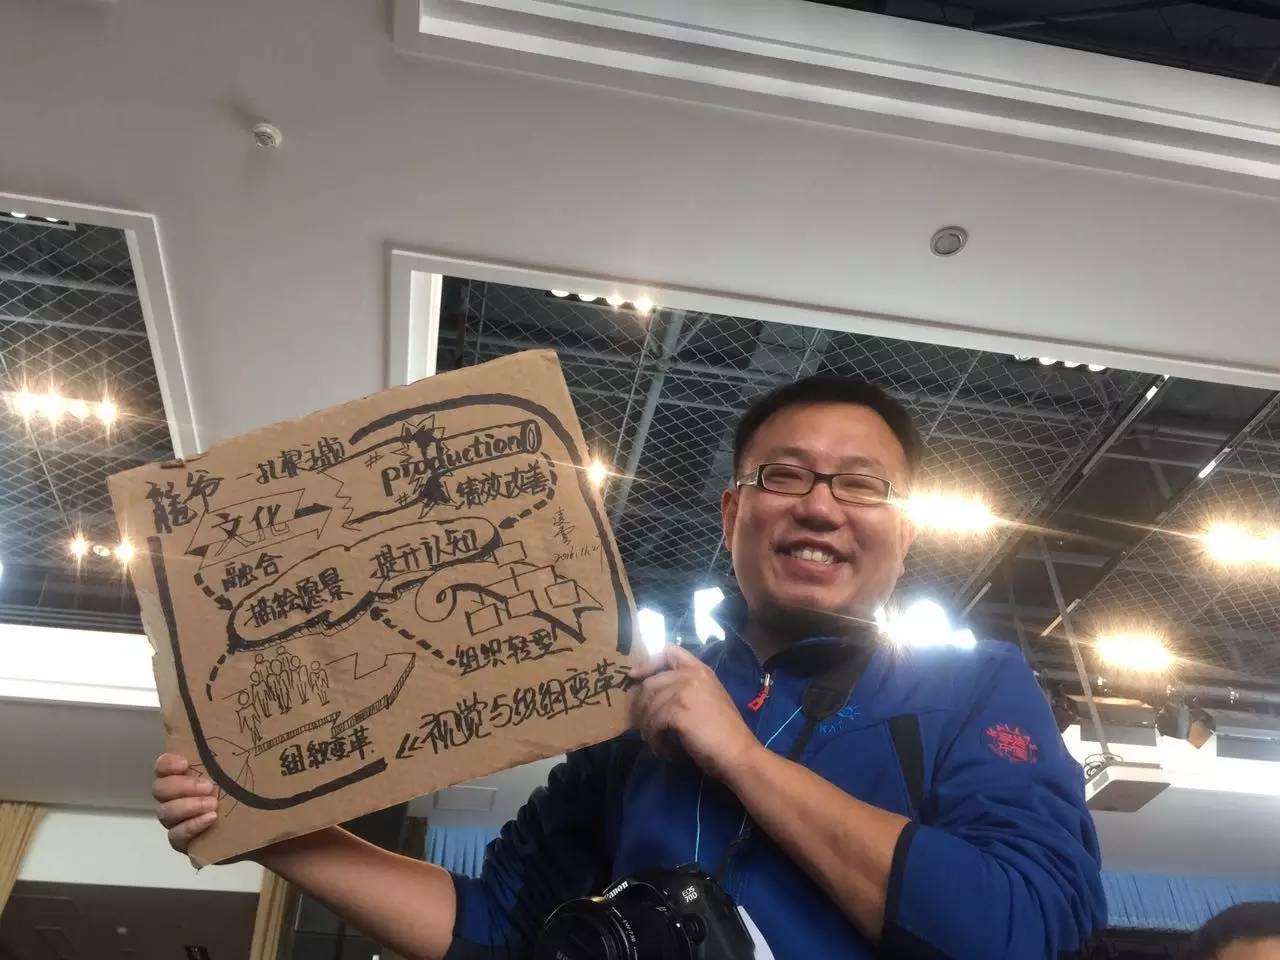 龍爷
production()
绩效改善
文化
融合
提升认知
描绘愿景
组织转型
2016.11.2
组织变革
《视觉与组织变革》
Canon
EOS
70D